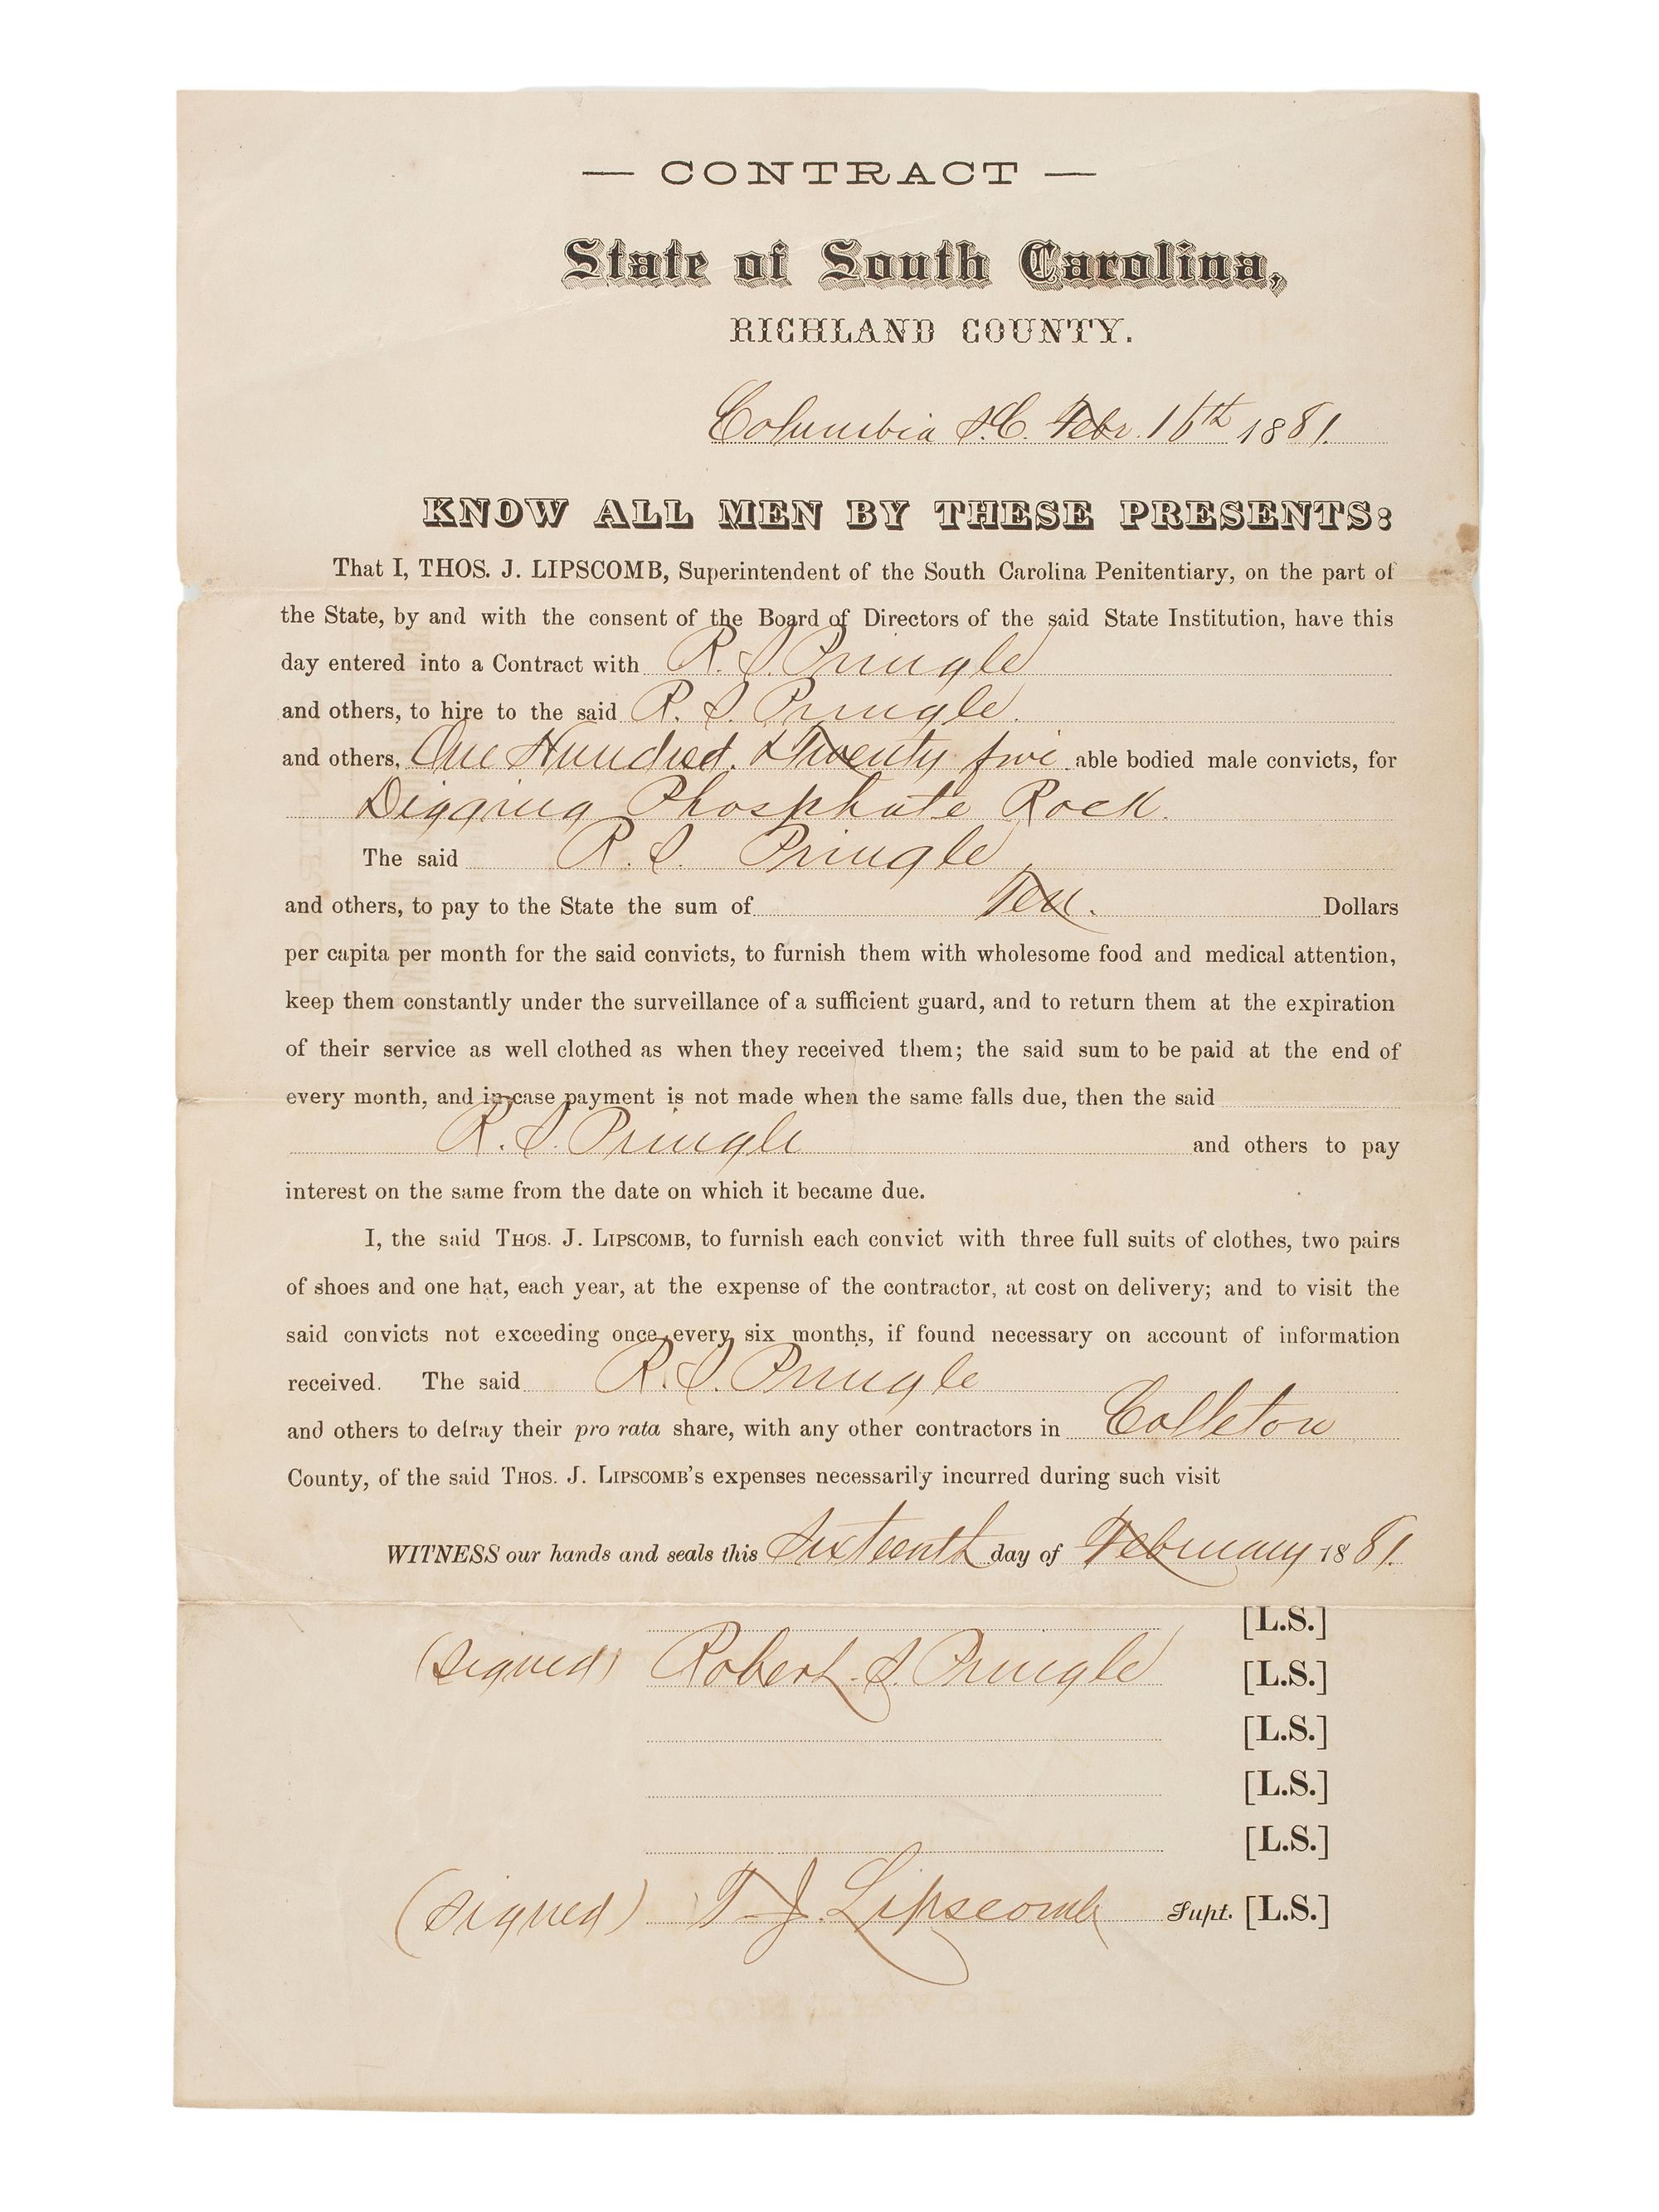 — CONTRACT —
State of South Carolina,
RICHLAND COUNTY.
Columbia S.C. Febr. 16th 1881.
KNOW ALL MEN BY THESE PRESENTS:
That I, THOS. J. LIPSCOMB, Superintendent of the South Carolina Penitentiary, on the part of
the State, by and with the consent of the Board of Directors of the said State Institution, have this
day entered into a Contract with R. S. Pringle
and others, to hire to the said R. S. Pringle.
and others, One Hundred. & Twenty five able bodied male convicts, for
Digging Phosphate Rock.
The said R. S. Pringle,
and others, to pay to the State the sum of Ten. Dollars
per capita per month for the said convicts, to furnish them with wholesome food and medical attention,
keep them constantly under the surveillance of a sufficient guard, and to return them at the expiration
of their service as well clothed as when they received them; the said sum to be paid at the end of
every month, and in case payment is not made when the same falls due, then the said
R. S. Pringle and others to pay
interest on the same from the date on which it became due.
I, the said THOS. J. LIPSCOMB, to furnish each convict with three full suits of clothes, two pairs
of shoes and one hat, each year, at the expense of the contractor, at cost on delivery; and to visit the
said convicts not exceeding once every six months, if found necessary on account of information
received. The said R. S. Pringle
and others to defray their pro rata share, with any other contractors in Colleton
County, of the said THOS. J. LIPSCOMB'S expenses necessarily incurred during such visit
WITNESS our hands and seals this Sixteenth day of February 1881.
[L.S.]
(signed) Robert S. Pringle [L.S.]
[L.S.]
[L.S.]
[L.S.]
(signed) T. J. Lipscomb Supt. [L.S.]